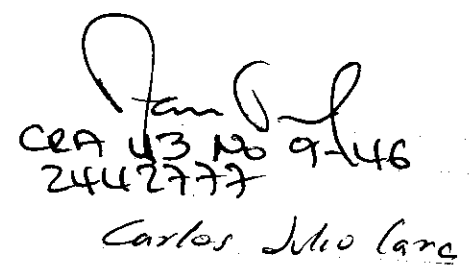 CRA 43 No 9-146
2442777
Carlos Julio